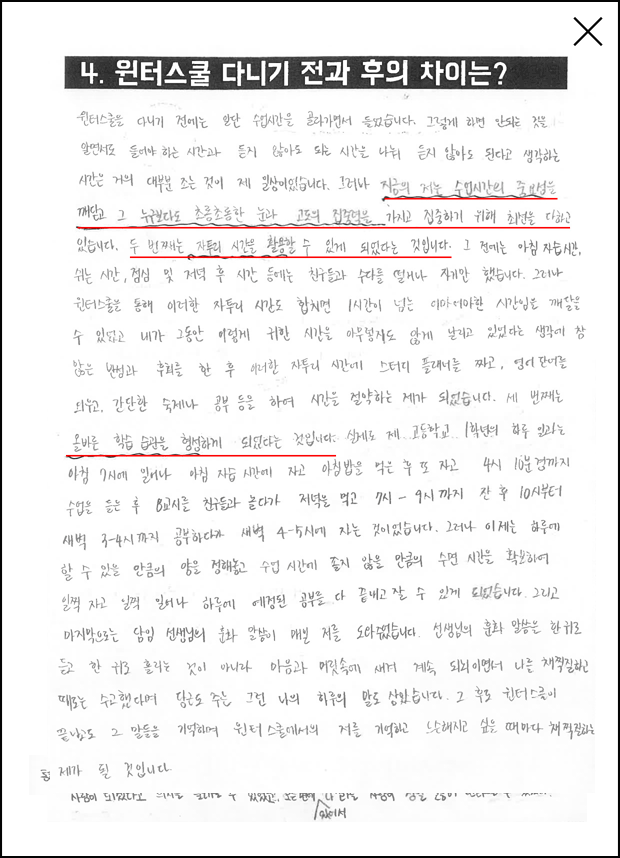 4. 윈터스쿨 다니기 전과 후의 차이는?
윈터스쿨을 다니기 전에는 일단 수업시간을 골라가면서 들었습니다. 그렇게 하면 안되는 것을
알면서도 들어야 하는 시간과 듣지 않아도 되는 시간을 나눠 듣지 않아도 된다고 생각하는
시간은 거의 대부분 조는 것이 제 일상이었습니다. 그러나 지금의 저는 수업시간의 중요성을
깨닫고 그 누구보다도 초롱초롱한 눈과 고도의 집중력을 가지고 집중하기 위해 최선을 다하고
있습니다. 두 번째는 자투리 시간을 활용할 수 있게 되었다는 것입니다. 그 전에는 아침 자습시간,
쉬는 시간, 점심 및 저녁 후 시간 등에는 친구들과 수다를 떨거나 자기만 했습니다. 그러나
윈터스쿨을 통해 이러한 자투리 시간도 합치면 1시간이 넘는 어마어마한 시간임을 깨달을
수 있었고 내가 그동안 이렇게 귀한 시간을 아무렇지도 않게 날리고 있었다는 생각에 참
많은 반성과 후회를 한 후 이러한 자투리 시간에 스터디 플래너를 짜고, 영어 단어를
외우고, 간단한 숙제나 공부 등을 하여 시간을 절약하는 제가 되었습니다. 세 번째는
올바른 학습 습관을 형성하게 되었다는 것입니다. 실제로 제 고등학교 1학년의 하루 일과는
아침 7시에 일어나 아침 자습 시간에 자고 아침밥을 먹은 후 또 자고 4시 10분경까지
수업을 들은 후 8교시를 친구들과 놀다가 저녁을 먹고 7시 - 9시까지 잔 후 10시부터
새벽 3-4시까지 공부하다가 새벽 4-5시에 자는 것이었습니다. 그러나 이제는 하루에
할 수 있을 만큼의 양을 정해놓고 수업 시간에 졸지 않을 만큼의 수면 시간을 확보하여
일찍 자고 일찍 일어나 하루에 예정된 공부를 다 끝내고 잘 수 있게 되었습니다. 그리고
마지막으로는 담임 선생님의 훈화 말씀이 매번 저를 도와주었습니다. 선생님의 훈화 말씀을 한 귀로
듣고 한 귀로 흘리는 것이 아니라 마음과 머릿속에 새겨 계속 되뇌이면서 나를 채찍질하고
때로는 수고했다며 당근도 주는 그런 나의 하루의 말로 삼았습니다. 그 후로 윈터스쿨이
끝났어도 그 말들을 기억하며 윈터스쿨에서의 저를 기억하고 느슨해지고 싶을 때마다 채찍질하는
제가 될 것입니다
있어서